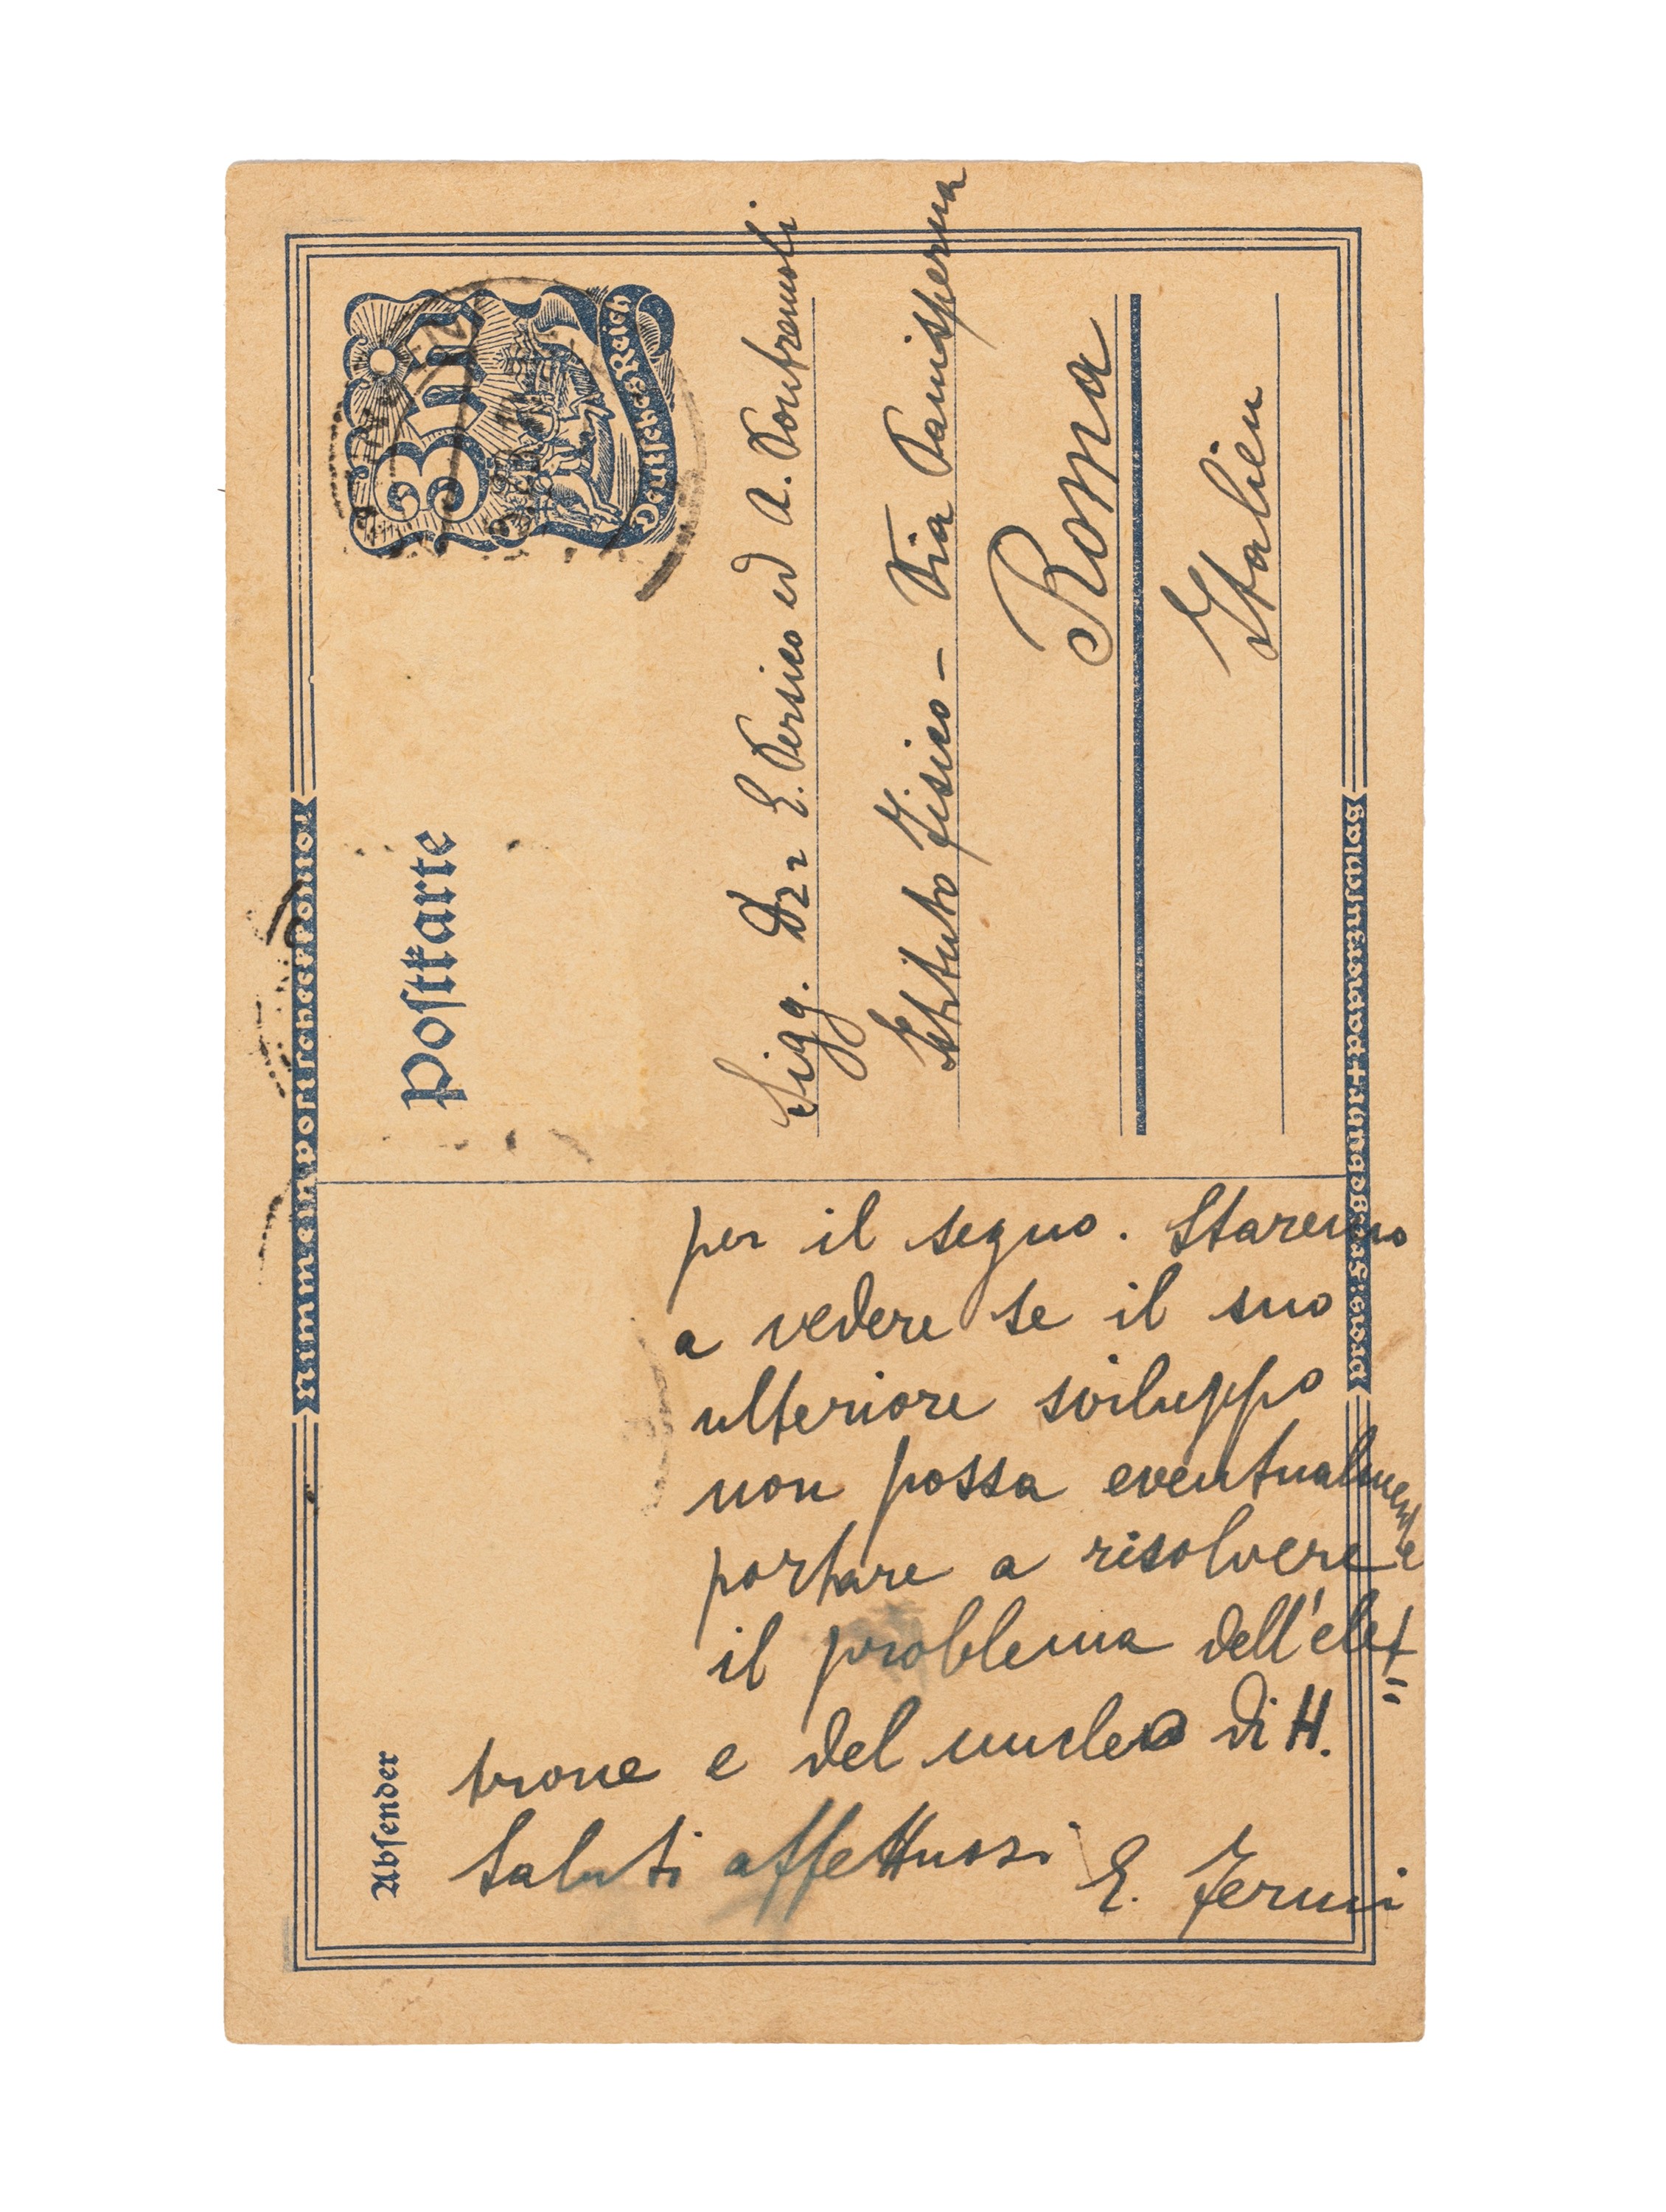 Postkarte
3 M
Deutsches Reich
Sigg. Dr. E. Persico ed A. Pontremoli
Istituto Fisico - Via Panisperna
Roma
Italien
Absender
per il segno. Staremo
a vedere se il suo
ulteriore sviluppo
non possa eventualmente
portare a risolvere
il problema dell'elet=
trone e del nucleo di H.
Saluti affettuosi E. Fermi